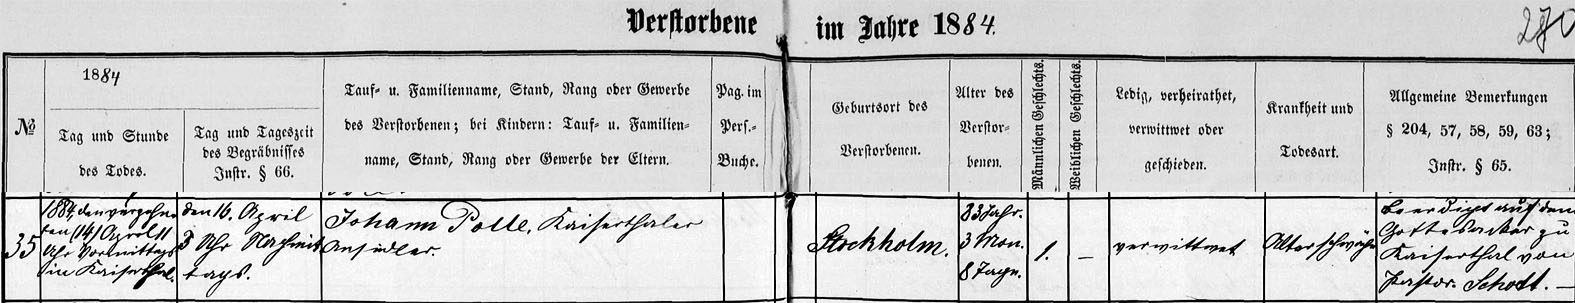 Verstorbene im Jahre 1884.
270
№
1884
Tag und Stunde
des Todes.
Tag und Tageszeit
des Begräbnisses
Instr. § 66.
Tauf- u. Familienname, Stand, Rang oder Gewerbe
des Verstorbenen; bei Kindern: Tauf- u. Familien-
name, Stand, Rang oder Gewerbe der Eltern.
Pag. im
Pers.-
Buche.
Geburtsort des
Verstorbenen.
Alter des
Verstor-
benen.
Männlichen Geschlechts.
Weiblichen Geschlechts.
Ledig, verheirathet,
verwittwet oder
geschieden.
Krankheit und
Todesart.
Allgemeine Bemerkungen
§ 204, 57, 58, 59, 63;
Instr. § 65.
35
1884, den vierzehn
ten (14) April 11
Uhr Vormittags
in Kaiserthal.
den 16. April
Uhr Nachmit
tags.
Johann Polle, Kaiserthaler
Ansiedler.
Stockholm.
83 Jahr.
3 Mon.
8 Tagen.
1.
–
verwittwet
Altersschwäche
beerdigt auf dem
Gottesacker zu
Kaiserthal von
Pastor Schott. —